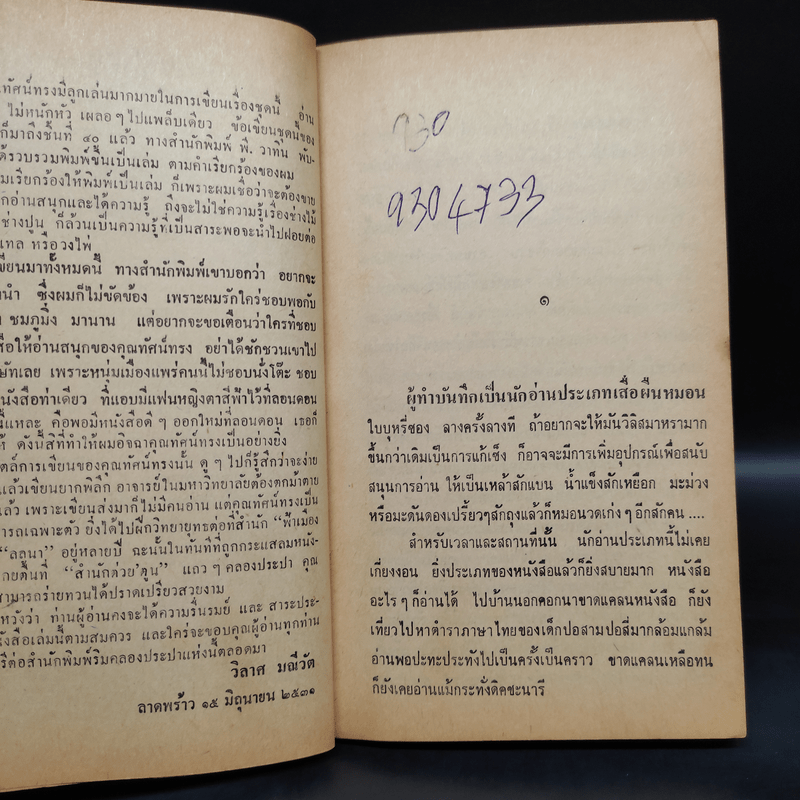 ทัศน์ทรงมีลูกเล่นมากมายในการเขียนเรื่องชุดนี้ อ่าน
ไม่หนักหัว เผลอๆ ไปแพล็บเดียว ข้อเขียนชุดนี้ของ
ก็มาถึงชิ้นที่ ๔๐ แล้ว ทางสำนักพิมพ์ พี. วาทิน พับ-
ด้รวบรวมพิมพ์ขึ้นเป็นเล่ม ตามคำเรียกร้องของผม
มเรียกร้องให้พิมพ์เป็นเล่ม ก็เพราะผมเชื่อว่าจะต้องขาย
กอ่านสนุกและได้ความรู้ ถึงจะไม่ใช่ความรู้เรื่องช่างไม้
ช่างปูน ก็ล้วนเป็นความรู้ที่เป็นสาระพอจะนำไปฝอยต่อ
เทล หรือวงไพ่
เขียนมาทั้งหมดนี้ ทางสำนักพิมพ์เขาบอกว่า อยากจะ
นำ ซึ่งผมก็ไม่ขัดข้อง เพราะผมรักใคร่ชอบพอกับ
ชมภูมิ่ง มานาน แต่อยากจะขอเตือนว่าใครที่ชอบ
สือให้อ่านสนุกของคุณทัศน์ทรง อย่าได้ชักชวนเขาไป
ษัทเลย เพราะหนุ่มเมืองแพร่คนนี้ไม่ชอบนั่งโต๊ะ ชอบ
นังสือท่าเดียว ที่แอบมีแฟนหญิงตาสีฟ้าไว้ที่ลอนดอน
นี้แหละ คือพอมีหนังสือดีๆ ออกใหม่ที่ลอนดอน เธอก็
ห้ ดังนี้สิที่ทำให้ผมอิจฉาคุณทัศน์ทรงเป็นอย่างยิ่ง
ตล์การเขียนของคุณทัศน์ทรงนั้น ดูๆ ไปก็รู้สึกว่าจะง่าย
แล้วเขียนยากพิลึก อาจารย์ในมหาวิทยาลัยต้องตกม้าตาย
แล้ว เพราะเขียนส่งมาก็ไม่มีคนอ่าน แต่คุณทัศน์ทรงเป็น
ารถเฉพาะตัว ยิ่งได้ไปฝึกวิทยายุทธต่อที่สำนัก "ฟ้าเมือง
"ลลนา" อยู่หลายปี ฉะนั้นในทันทีที่ถูกกระแสลมหนัง-
กยต้นที่ "สำนักด่วย'ตูน" แถวๆ คลองประปา คุณ
สามารถร่ายทวนได้ปราดเปรียวสวยงาม
หวังว่า ท่านผู้อ่านคงจะได้ความรื่นรมย์ และ สาระประ-
งสือเล่มนี้ตามสมควร และใคร่จะขอบคุณผู้อ่านทุกท่าน
รีต่อสำนักพิมพ์ริมคลองประปาแห่งนี้ตลอดมา
วิลาศ มณีวัต
ลาดพร้าว ๑๕ มิถุนายน ๒๕๓๑
930
9304733
๑
ผู้ทำบันทึกเป็นนักอ่านประเภทเสื่อผืนหมอน
ใบบุหรี่ซอง ลางครั้งลางที ถ้าอยากจะให้มันวิลิสมาหรามาก
ขึ้นกว่าเดิมเป็นการแก้เซ็ง ก็อาจจะมีการเพิ่มอุปกรณ์เพื่อสนับ
สนุนการอ่าน ให้เป็นเหล้าสักแบน น้ำแข็งสักเหยือก มะม่วง
หรือมะดันดองเปรี้ยวๆสักถุงแล้วก็หมอนวดเก่งๆ อีกสักคน ....
สำหรับเวลาและสถานที่นั้น นักอ่านประเภทนี้ไม่เคย
เกี่ยงงอน ยิ่งประเภทของหนังสือแล้วก็ยิ่งสบายมาก หนังสือ
อะไรๆ ก็อ่านได้ ไปบ้านนอกคอกนาขาดแคลนหนังสือ ก็ยัง
เที่ยวไปหาตำราภาษาไทยของเด็กปอสามปอสี่มากล้อมแกล้ม
อ่านพอปะทะประทังไปเป็นครั้งเป็นคราว ขาดแคลนเหลือทน
ก็ยังเคยอ่านแม้กระทั่งดิคชะนารี